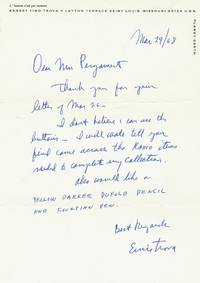 ERNEST TINO TROVA 6 LAYTON TERRACE SAINT LOUIS, MISSOURI 63124 U.S.A.
PLANET EARTH
Mar 29/68
Dear Mr. Pergament
Thank you for your
letter of Mar 26 —
I don't believe I can use the
buttons — I will tell your
friend came across the Radio items
needed to complete my collection.
Also would like a
YELLOW PARKER DUFOLD PENCIL
AND FOUNTIAN PEN.
Best Regards
Ernie Trova